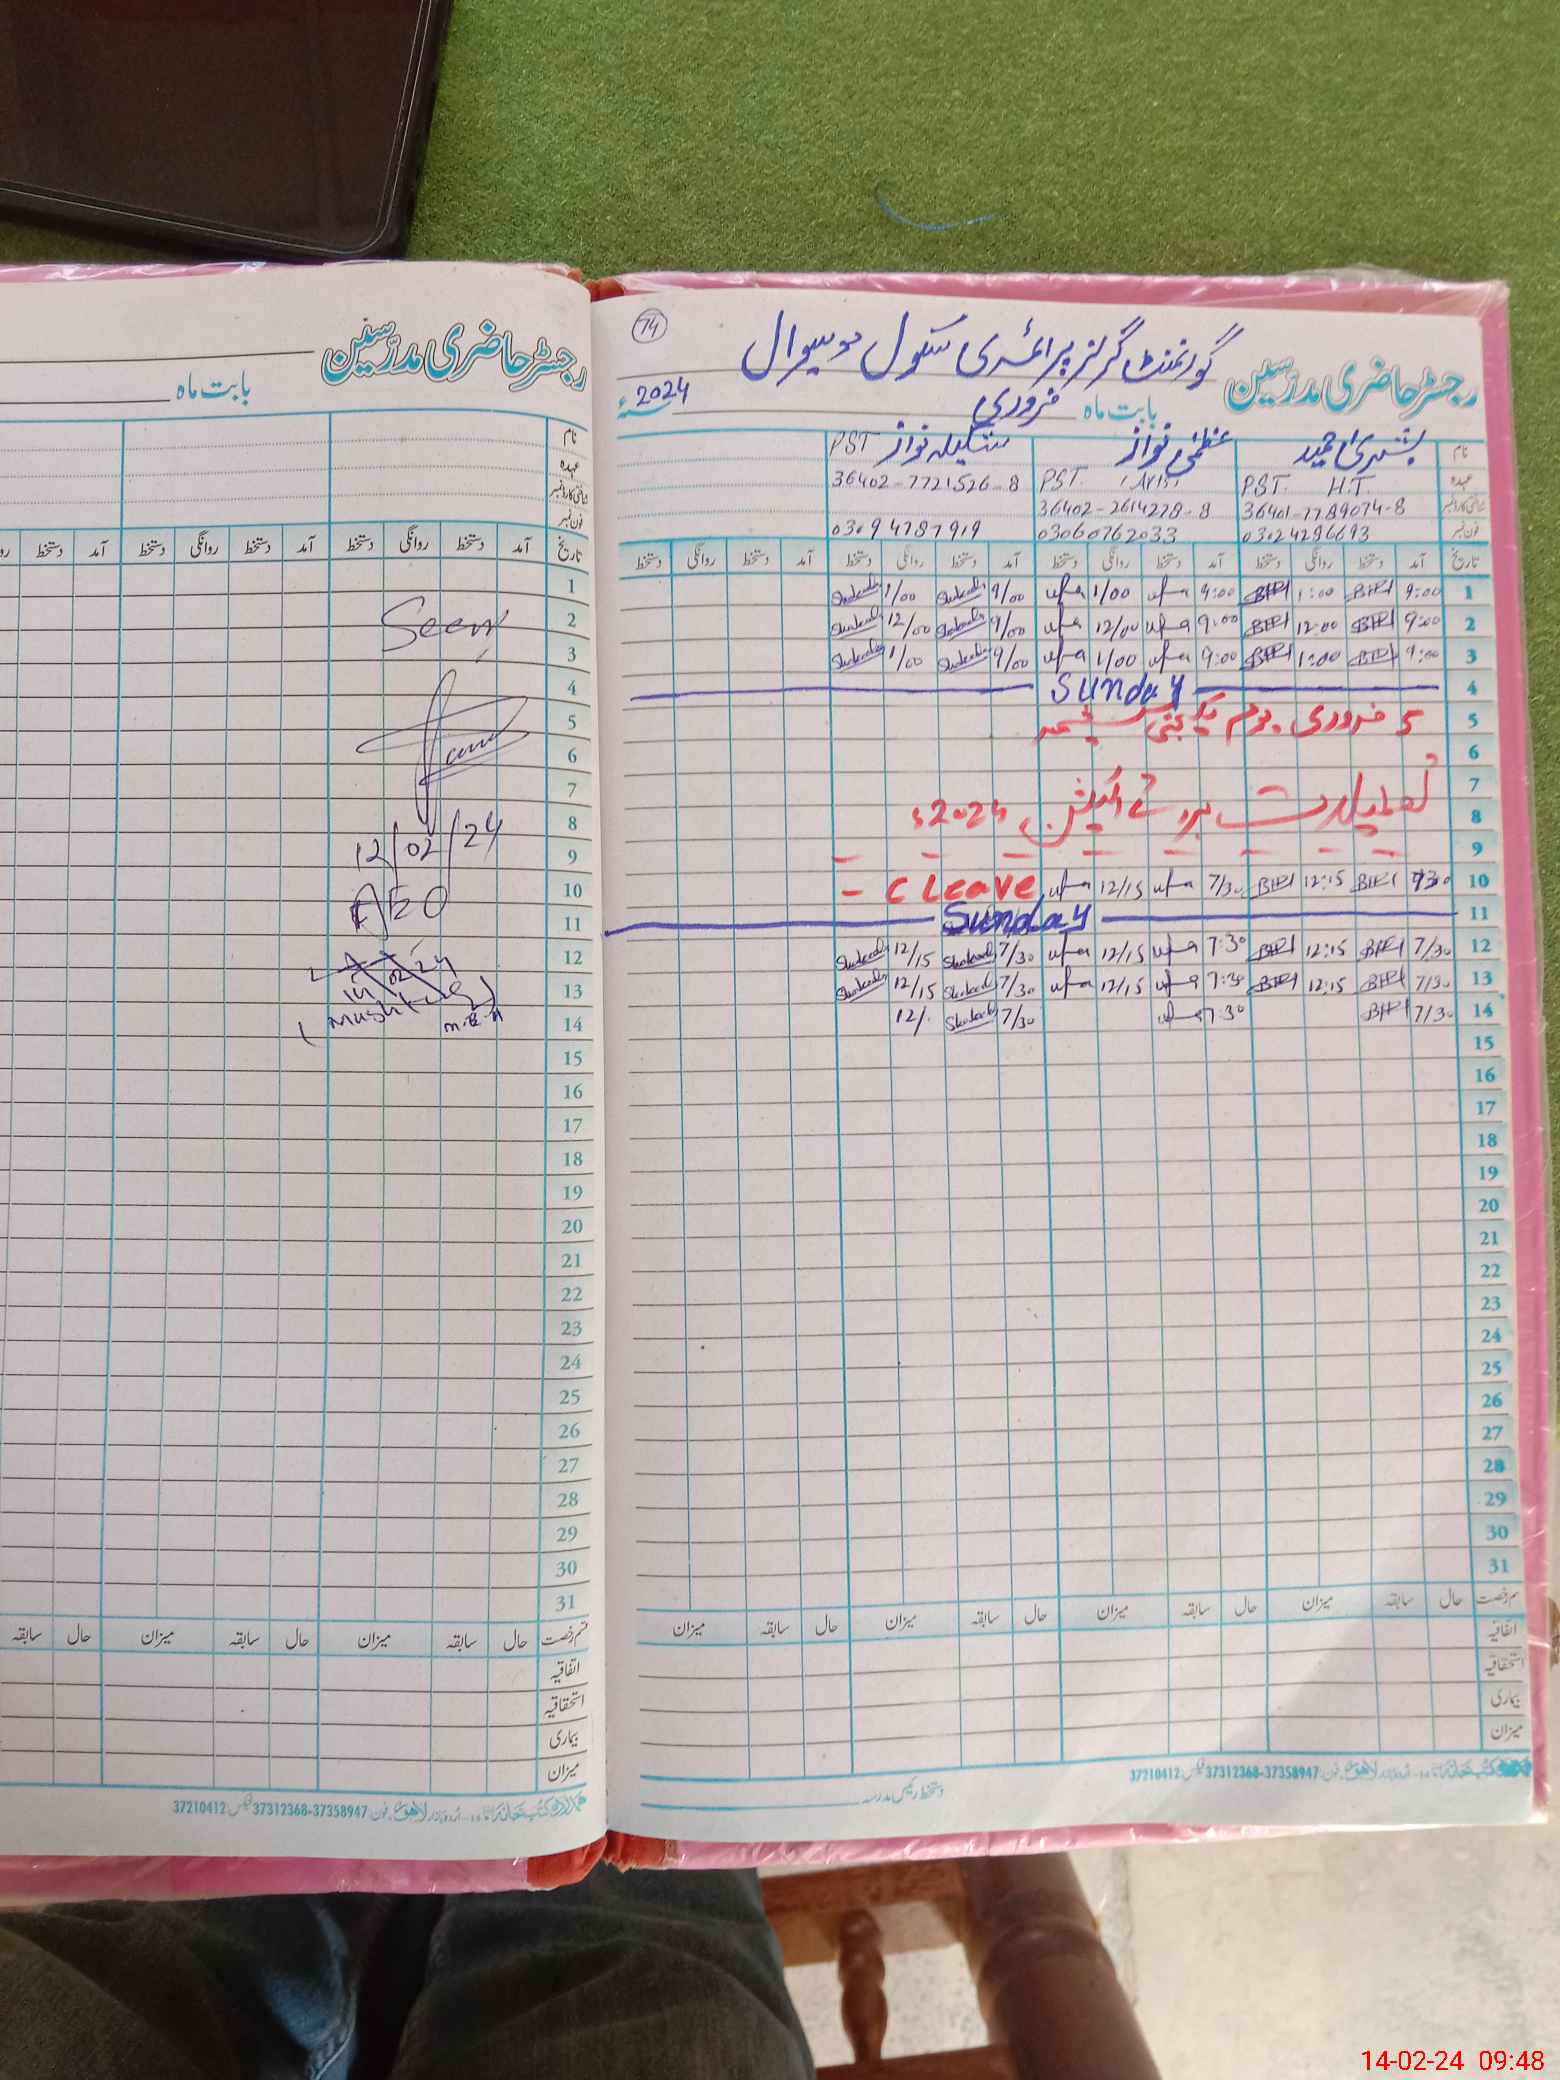 رجسٹر حاضری مدرسین
بابت ماہ
نام
عہدہ
شناختی کارڈ نمبر
فون نمبر
تاریخ آمد دستخط روانگی دستخط آمد دستخط روانگی دستخط آمد دستخط
1
2 Seen
3
4
5
6
7
8
9 12/02/24
10 AEO
11
12
13
14
15
16
17
18
19
20
21
22
23
24
25
26
27
28
29
30
31
قسم رخصت حال سابقہ میزان حال سابقہ میزان حال سابقہ
اتفاقیہ
استحقاقیہ
بیماری
میزان
37210412 37312368-37358947
74
رجسٹر حاضری مدرسین گورنمنٹ گرلز پرائمری سکول
بابت ماہ فروری 2024
نام بشریٰ حمید عظمیٰ نواز شکیلہ نواز PST
عہدہ PST H.T. PST
شناختی کارڈ نمبر 36401-7789074-8 36402-2614228-8 36402-7721526-8
فون نمبر 03024286693 03060762033 03094787919
تاریخ آمد دستخط روانگی دستخط آمد دستخط روانگی دستخط آمد دستخط روانگی دستخط آمد دستخط روانگی دستخط
1 9:00 1:00 9:00 1/00 9/00 1/00
2 9:00 12:00 9:00 12/00 9/00 12/00
3 9:00 1:00 9:00 1/00 9/00 1/00
4 Sunday
5 5 فروری یوم یکجہتی کشمیر
6
7
8 تعطیلات برائے الیکشن 2024ء
9
10 7:30 12:15 7/30 12/15 C Leave
11 Sunday
12 7/30 12:15 7:30 12/15 7/30 12/15
13 7/30 12:15 7:30 12/15 7/30 12/15
14 7/30 7:30 7/30 12/.
15
16
17
18
19
20
21
22
23
24
25
26
27
28
29
30
31
قسم رخصت حال سابقہ میزان حال سابقہ میزان حال سابقہ میزان حال سابقہ میزان
اتفاقیہ
استحقاقیہ
بیماری
میزان
37210412 37312368-37358947
دستخط رئیس مدرسہ
14-02-24 09:48